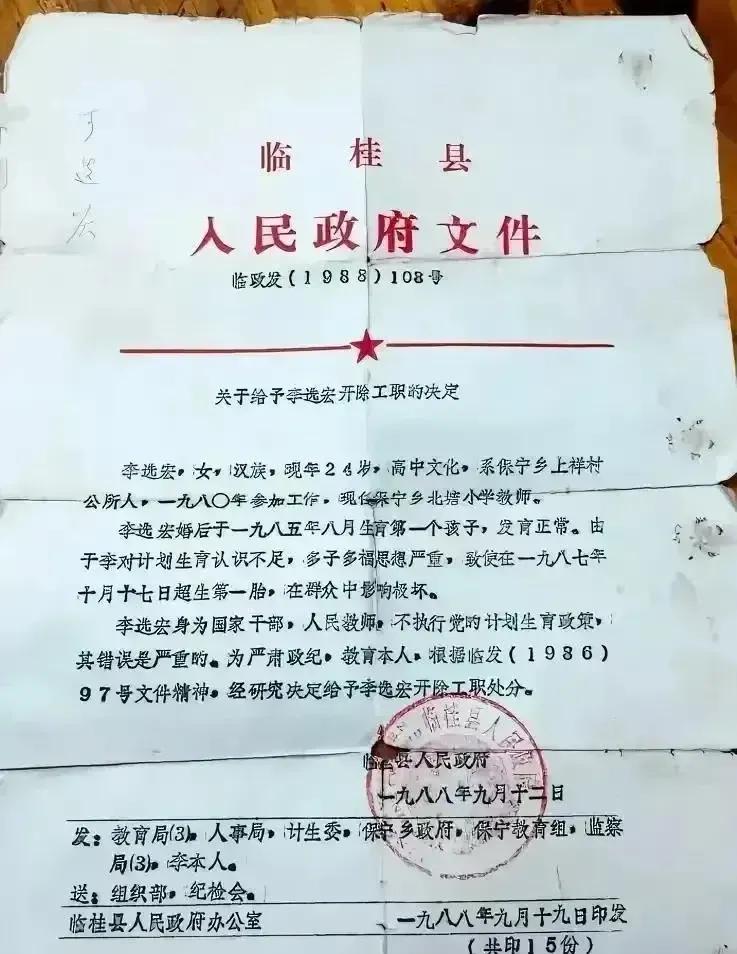 李选宏
临桂县
人民政府文件
临政发(1988)108号
关于给予李选宏开除工职的决定
李选宏,女,汉族,现年24岁,高中文化,系保宁乡上祥村
公所人,一九八〇年参加工作,现任保宁乡北塘小学教师。
李选宏婚后于一九八五年八月生育第一个孩子,发育正常。由
于李对计划生育认识不足,多子多福思想严重,致使在一九八七年
十月十七日超生第一胎,在群众中影响极坏。
李选宏身为国家干部,人民教师,不执行党的计划生育政策,
其错误是严重的。为严肃政纪,教育本人,根据临发(1986)
97号文件精神,经研究决定给予李选宏开除工职处分。
临桂县人民政府
临桂县人民政府
一九八八年九月十二日
发:教育局(3),人事局,计生委,保宁乡政府,保宁教育组,监察
局(3),李本人。
送:组织部,纪检会。
临桂县人民政府办公室 一九八八年九月十九日印发
(共印15份)